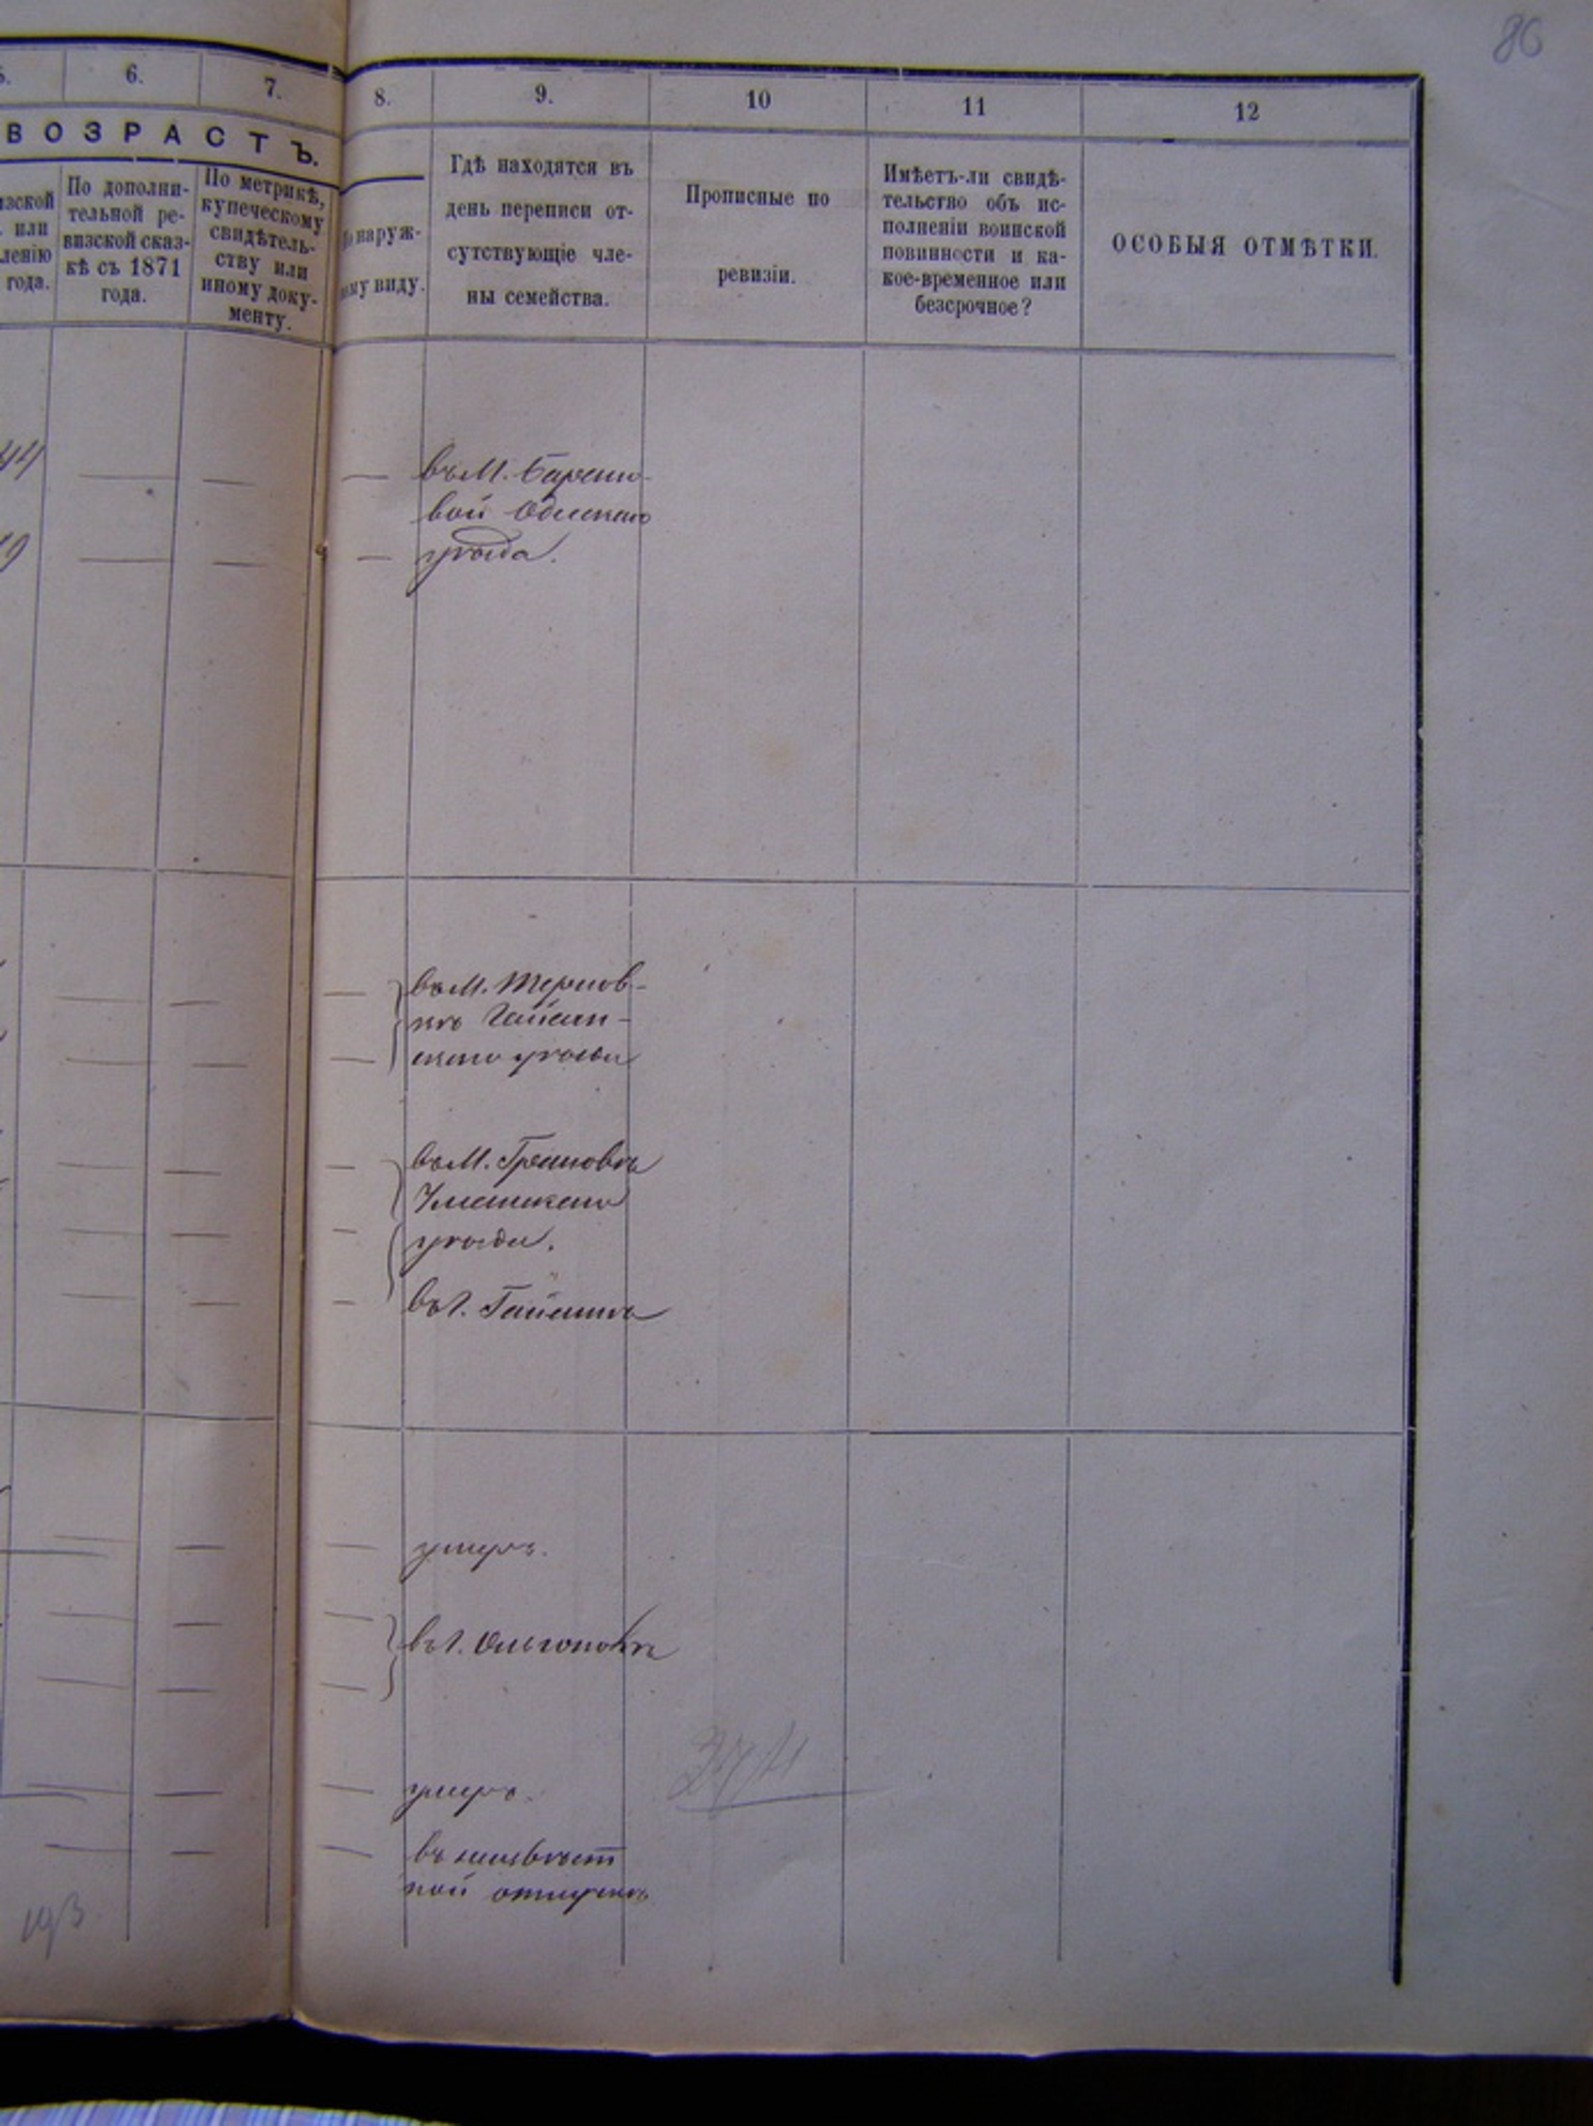 86
6.
7.
8.
9.
10
11
12
ВОЗРАСТЪ.
По дополни-
тельной ре-
визской сказ-
кѣ съ 1871
года.
По метрикѣ,
купеческому
свидѣтель-
ству или
иному доку-
менту.
наруж-
ому виду.
Гдѣ находятся въ
день переписи от-
сутствующіе чле-
ны семейства.
Прописные по
ревизіи.
Имѣетъ-ли свидѣ-
тельство объ ис-
полненіи воинской
повинности и ка-
кое-временное или
безсрочное?
ОСОБЫЯ ОТМѢТКИ.
изской
или
ленію
года.
44
въ М.
вой
уѣзда.
въ М. Тернов-
кѣ Гайсин-
скаго уѣзда
въ М. Грановкѣ
Уманскаго
уѣзда.
въ Г. Гайсинѣ
умеръ.
въ Г. Ольгополѣ
умеръ.
въ неизвѣст
ной отлучкѣ